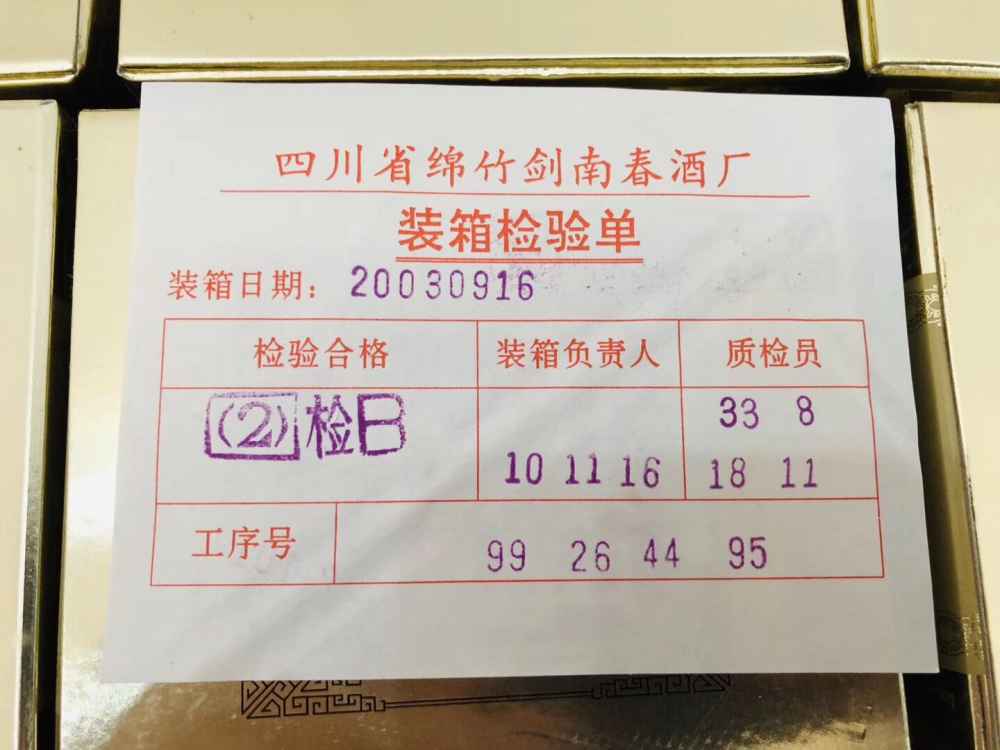 四川省绵竹剑南春酒厂
装箱检验单
装箱日期：20030916
检验合格 装箱负责人 质检员
33 8
(2)检B
10 11 16 18 11
工序号 99 26 44 95